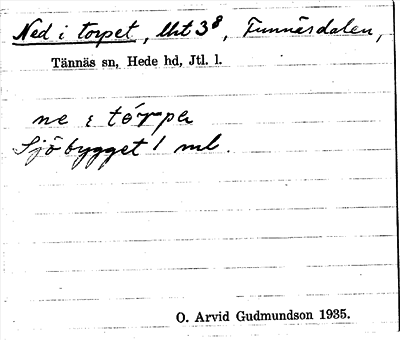 Ned i torpet, Uht 3⁸, Funnäsdalen,
Tännäs sn, Hede hd, Jtl. l.
ne i tórpa
Sjöbygget 1 ml.
O. Arvid Gudmundson 1935.